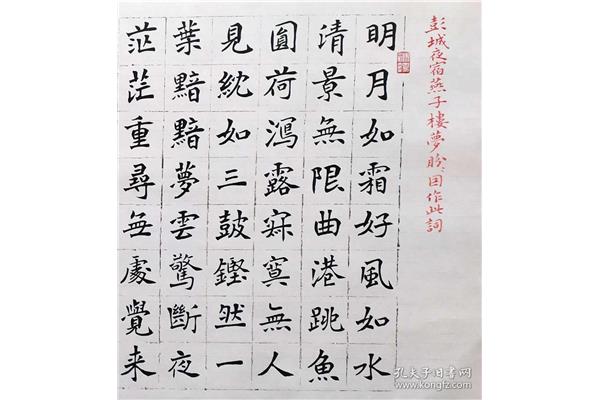 彭城夜宿燕子樓夢盼〻因作此詞
明月如霜好風如水
清景無限曲港跳魚
圓荷瀉露寂寞無人
見紞如三鼓鏗然一
葉黯黯夢雲驚斷夜
茫茫重尋無處覺來
孔夫子旧书网
www.kongfz.com